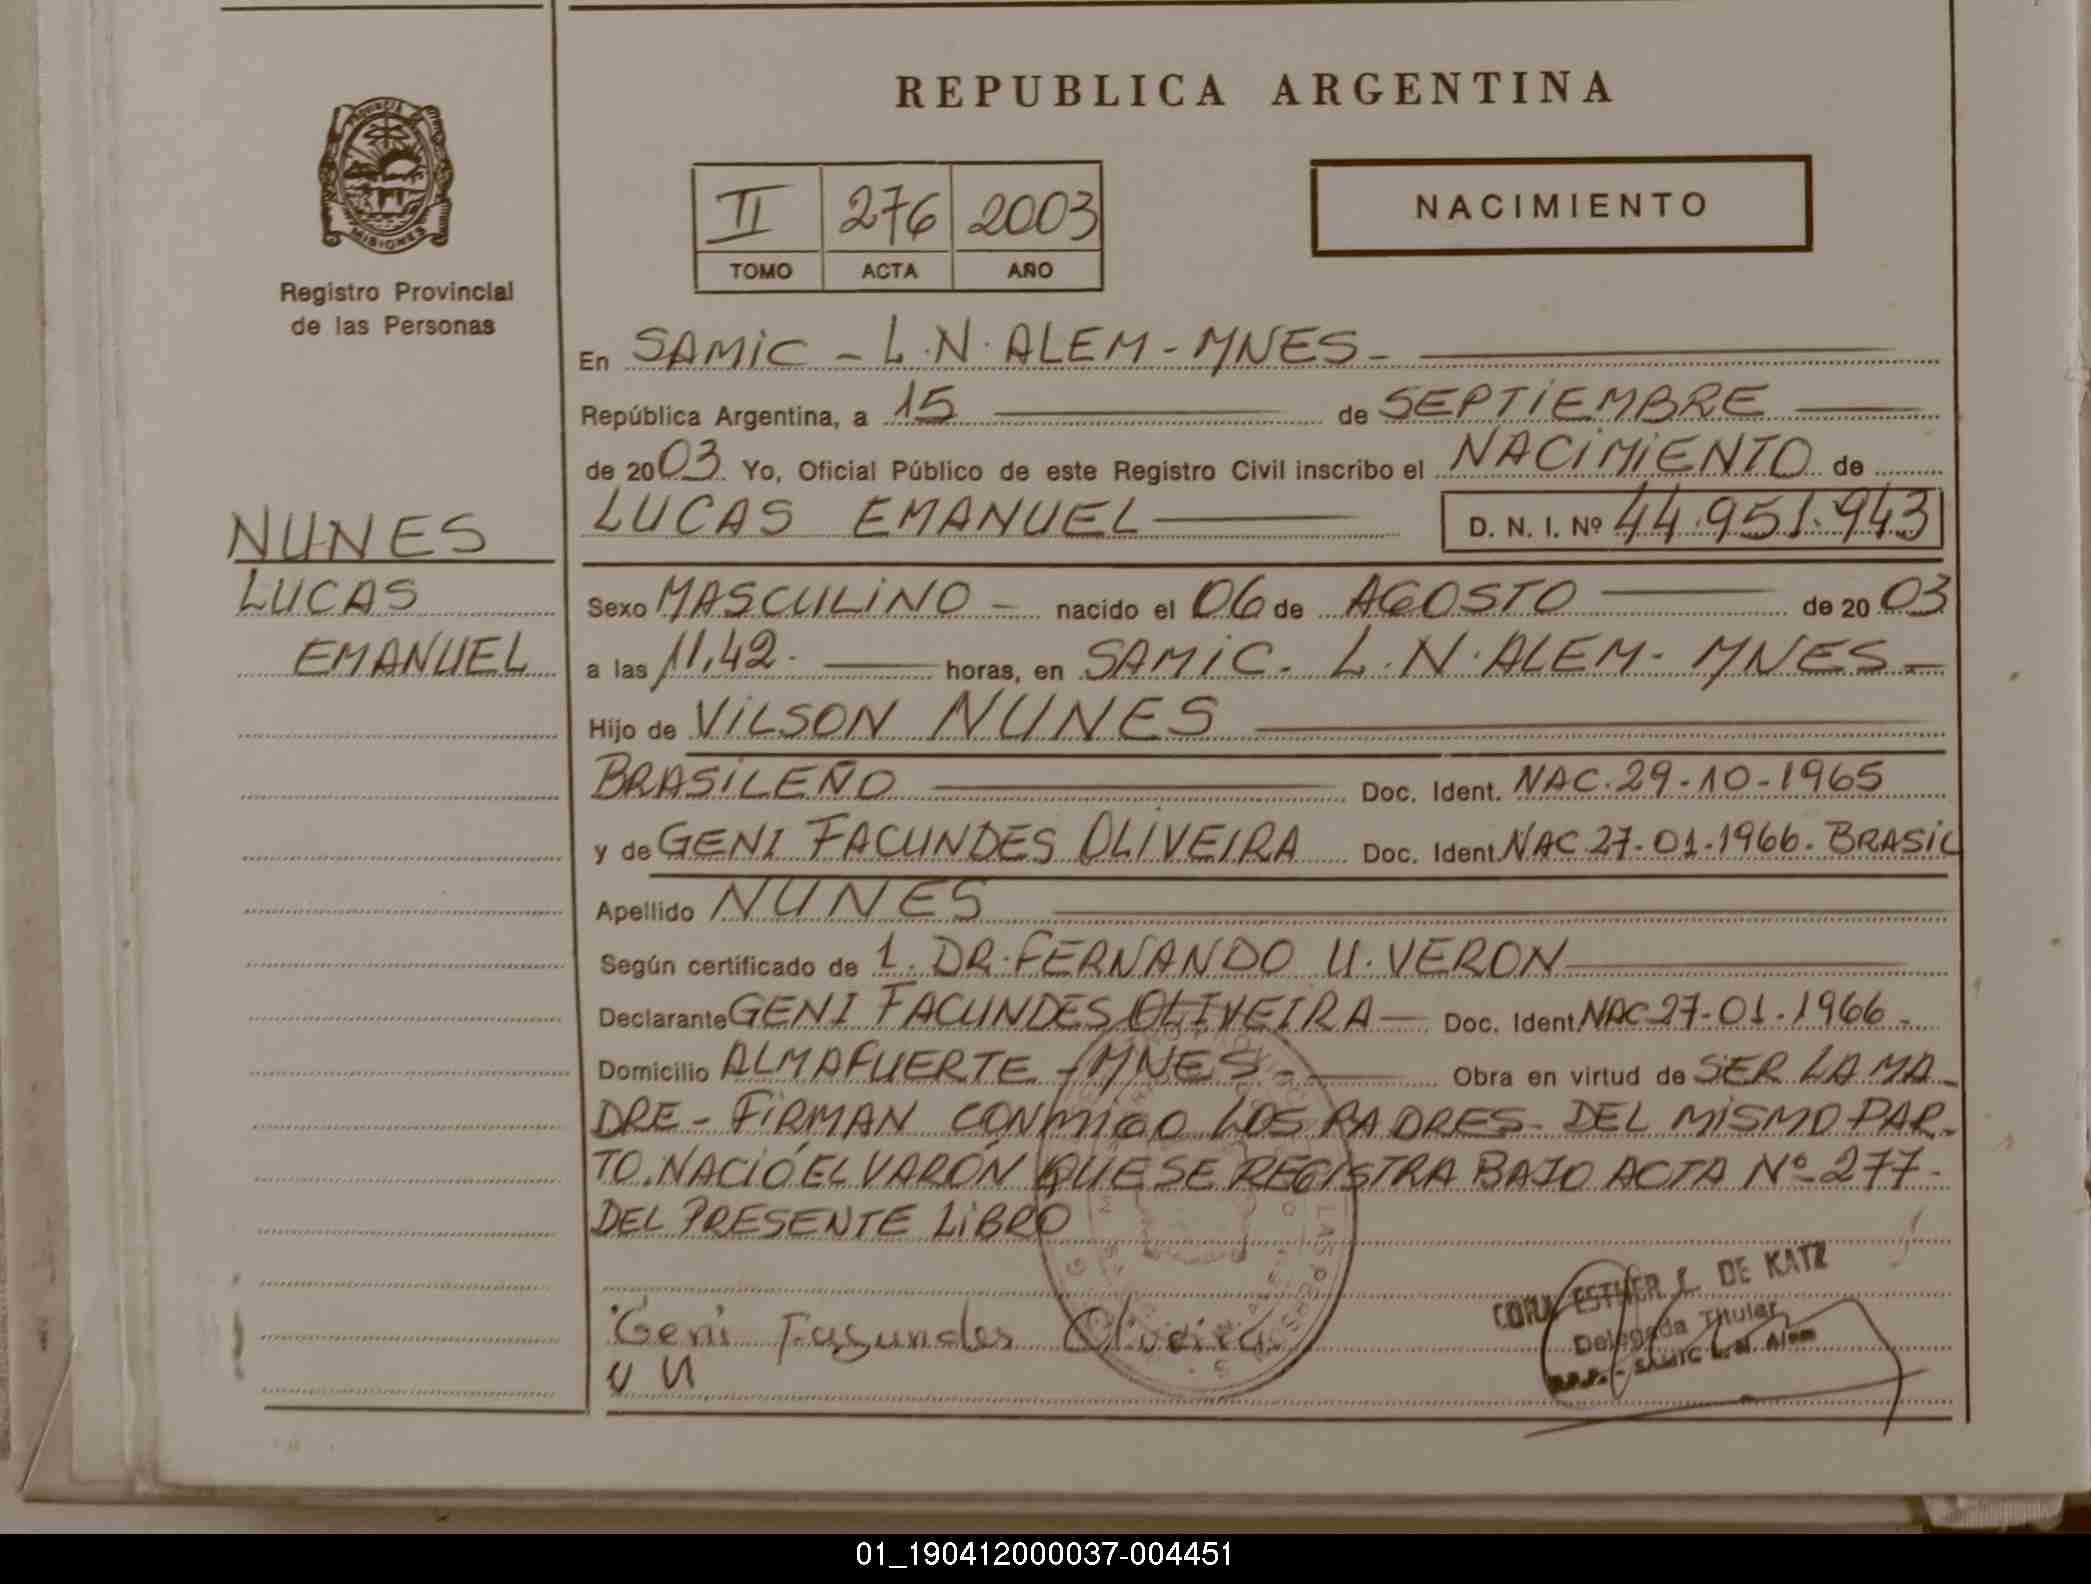 REPUBLICA ARGENTINA
PROVINCIA DE
MISIONES
Registro Provincial
de las Personas
II 276 2003
TOMO ACTA AÑO
NACIMIENTO
En SAMIC - L.N. ALEM - MNES -
República Argentina, a 15 de SEPTIEMBRE
de 2003 Yo, Oficial Público de este Registro Civil inscribo el NACIMIENTO de
LUCAS EMANUEL D. N. I. Nº 44.951.943
NUNES
LUCAS
EMANUEL
Sexo MASCULINO - nacido el 06 de AGOSTO de 2003
a las 11,42. horas, en SAMIC. L.N. ALEM - MNES -
Hijo de VILSON NUNES
BRASILEÑO Doc. Ident. NAC. 29-10-1965
y de GENI FACUNDES OLIVEIRA Doc. Ident. NAC. 27-01-1966. BRASIL
Apellido NUNES
Según certificado de 1. DR. FERNANDO U. VERON
Declarante GENI FACUNDES OLIVEIRA - Doc. Ident. NAC 27-01-1966 -
Domicilio ALMAFUERTE - MNES - Obra en virtud de SER LA MA-
DRE - FIRMAN CONMIGO LOS PADRES - DEL MISMO PAR-
TO. NACIÓ EL VARÓN QUE SE REGISTRA BAJO ACTA Nº 277 -
DEL PRESENTE LIBRO
Geni Fagundes Oliveira
V N
CORA ESTHER L. DE KATZ
Delegada Titular
R.P.P. - SAMIC L.N. Alem
01_190412000037-004451